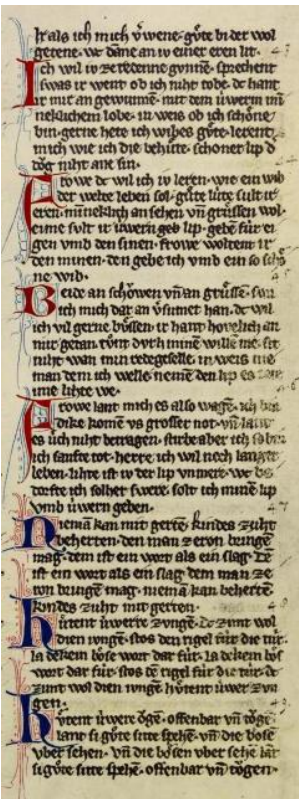 lr als ich mich v̓wene. gv̊te bi der wol
getene. wc dane an iv einer eren lit.
Ich wil iv ze redenne gvnnē. sprechent
swas ir went ob ich niht tobe. dc hant
ir mir an gewunnē. mit dem ủwerm mī
neklichem lobe. in weis ob ich schȯne
bin. gerne hete ich wibes gv̊te. lerent
mich wie ich die behủte. schoner lip d
tȯg niht ane sin.
Frowe dc wil ich iv leren. wie ein wib
der welte leben sol. gủte lủte sult ir
eren. mīneklich an sehen vn̄ grůssen wol.
eime sult ir iuwern geb lip. gebē fủr ei
gen vmb den sinen. frowe woltent ir
den minen. den gebe ich vmb ein so schȯ
ne wib.
Beide an schȯwen vn̄ an grủsse. swc
ich mich dar an v̓sumet han. dc wil
ich vil gerne bůssen. ir hant hovelich an
mir getan. tůnt dvrh minē willē me. sit
niht wan min redegeselle. in weis nie
man dem ich welle. nemē den lip es tete
ime lihte we.
Frowe lant mich es also wagē. ich bin
dike komē vs grosser not. vn̄ lant
es ủch niht betragen. stirbe aber ich so bin
ich sanfte tot. herre ich wil noch langer
leben. lihte ist iv der lip vnmere. wc be
dorfte ich solher swere. solt ich minē lip
vmb ủwern geben.
Niemā kan mit gertē. kindes zuht
beherten. den man zeren bringē
mag. dem ist ein wort als ein slag. dē
ist ein wort als ein slag. dem man ze
ren bringē mag. niemā kan behertē
kindes zuht mit gerten.
Hůtent ủwerre zvngē. dc zimt wol
dien ivngē. stos den rigel fủr die tủr.
la dekein bȯse wort dar fủr. la dekein bȯs
wort dar fủr. stos dē rigel fủr die tủr. dc
zimt wol dien ivngē. hủtent ủwer zvn
gen.
Hůtent ủwere ȯgē. offenbar vn̄ tȯge
lant si gv̊te sitte spehē. vn̄ die bȯse
vber sehen. vn̄ die bȯsen vber sehē lat
si gv̊te sitte spehē. offenbar vn̄ tȯgen.